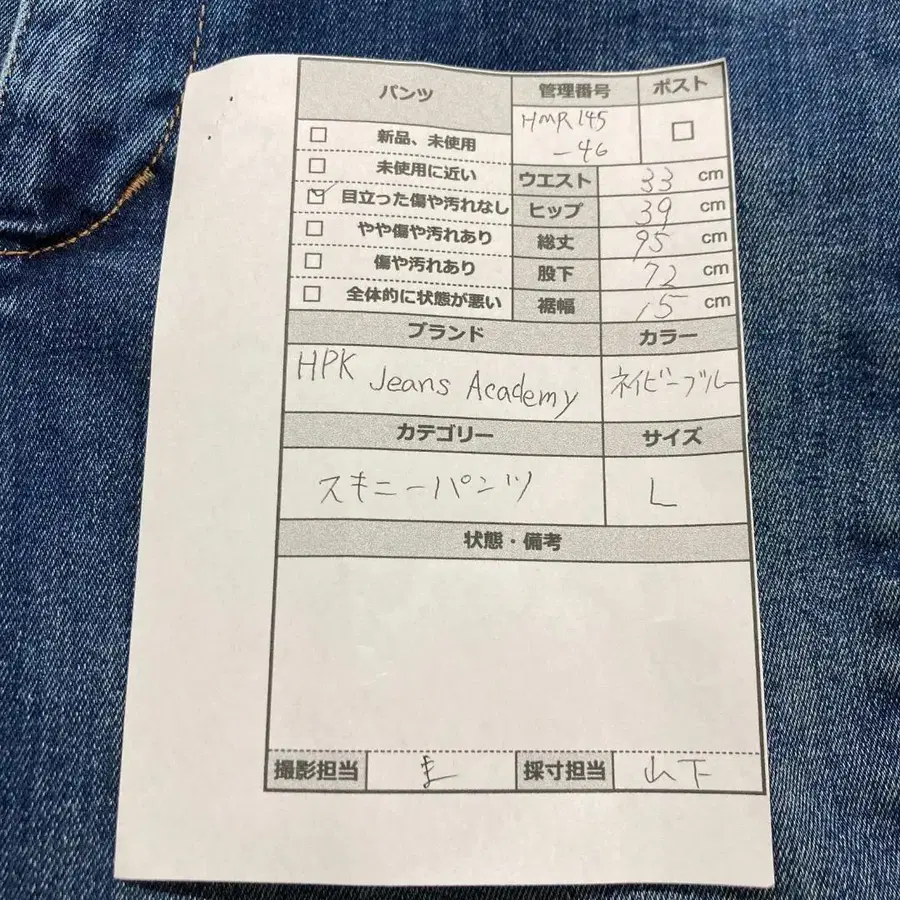 パンツ
管理番号
ポスト
HMR145
-46
□
□ 新品、未使用
□ 未使用に近い
☑ 目立った傷や汚れなし
□ やや傷や汚れあり
□ 傷や汚れあり
□ 全体的に状態が悪い
ウエスト 33 cm
ヒップ 39 cm
総丈 95 cm
股下 72 cm
裾幅 15 cm
ブランド
カラー
HPK Jeans Academy
ネイビーブルー
カテゴリー
サイズ
スキニーパンツ
L
状態・備考
撮影担当
採寸担当 山下